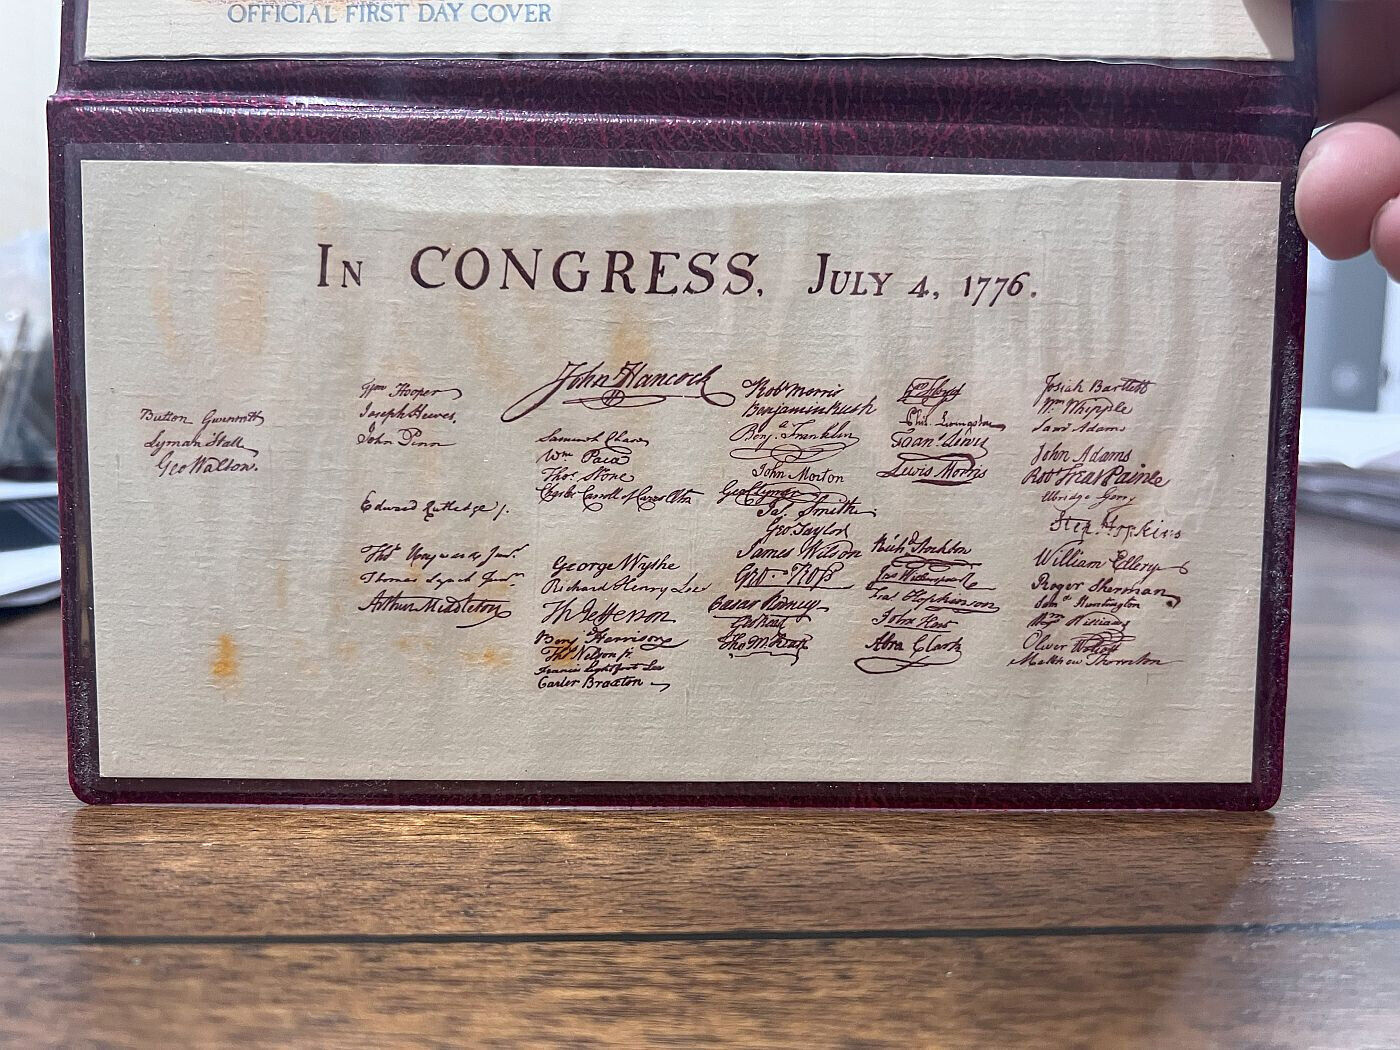 OFFICIAL FIRST DAY COVER
IN CONGRESS, JULY 4, 1776.
Button Gwinnett
Lyman Hall
Geo Walton.
Wm Hooper
Joseph Hewes,
John Penn
Edward Rutledge /.
Thos Heyward Junr.
Thomas Lynch Junr.
Arthur Middleton
John Hancock
Samuel Chase
Wm Paca
Thos Stone
Charles Carroll of Carrollton
George Wythe
Richard Henry Lee
Th Jefferson
Benj Harrison
Thos Nelson jr.
Francis Lightfoot Lee
Carter Braxton
Robt Morris
Benjamin Rush
Benj. Franklin
John Morton
Geo Clymer
Jas. Smith
Geo Taylor
James Wilson
Geo. Ross
Caesar Rodney
Geo Read
Tho M:Kean
Wm Floyd
Phil. Livingston
Frans Lewis
Lewis Morris
Richd Stockton
Jno Witherspoon
Fras Hopkinson
John Hart
Abra Clark
Josiah Bartlett
Wm Whipple
Saml Adams
John Adams
Robt Treat Paine
Elbridge Gerry
Step. Hopkins
William Ellery
Roger Sherman
Saml Huntington
Wm Williams
Oliver Wolcott
Matthew Thornton